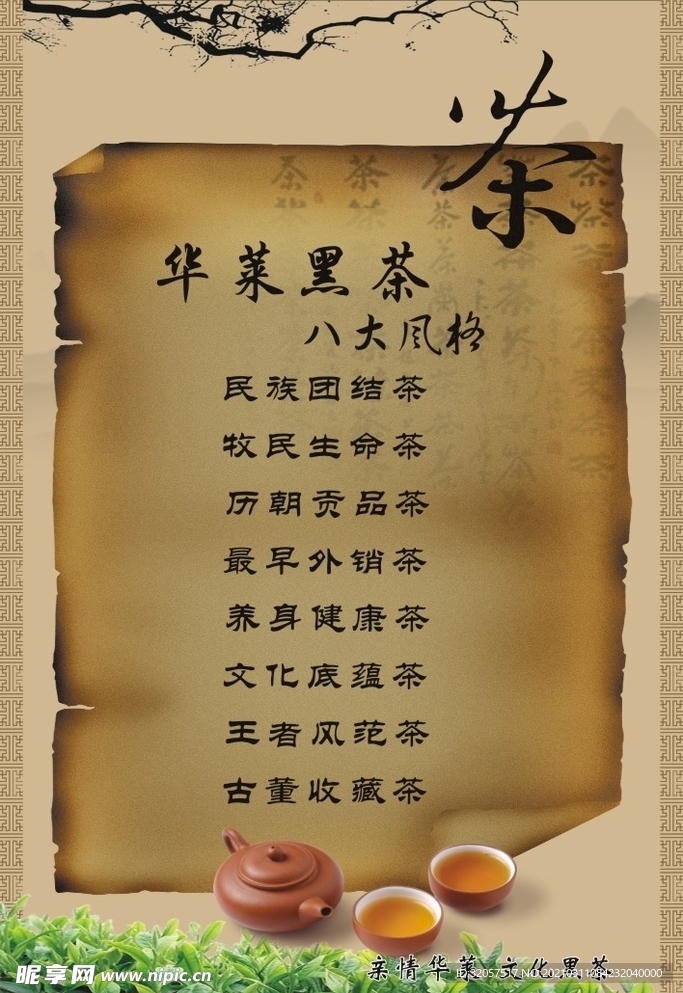 茶
华莱黑茶
八大风格
民族团结茶
牧民生命茶
历朝贡品茶
最早外销茶
养身健康茶
文化底蕴茶
王者风范茶
古董收藏茶
亲情华莱 文化黑茶
昵享网 www.nipic.cn
ID:32057517 NO:20210311084232040000